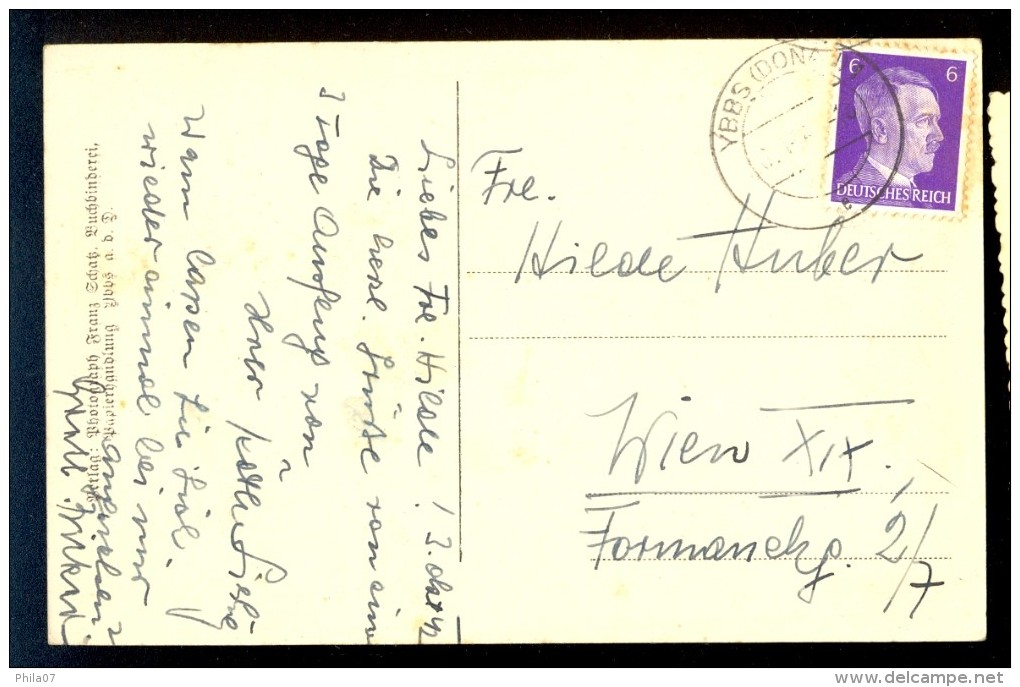 YBBS (DONAU)
6 6
DEUTSCHES REICH
Frl.
Hilde Huber
Wien XIX.
Formanekg. 2/7
Liebes Frl. Hilde! 3. Okt 42
Die besl. Grüsse von eine
3 Tage Ausflug von
Ihrer
Wann lassen Sie Sich
wieder einmal bei mir
anschauen?
Verlag: Photograph Franz Schatz, Buchbinderei,
Papierhandlung Ybbs a. d. D.
Phila07
www.delcampe.net